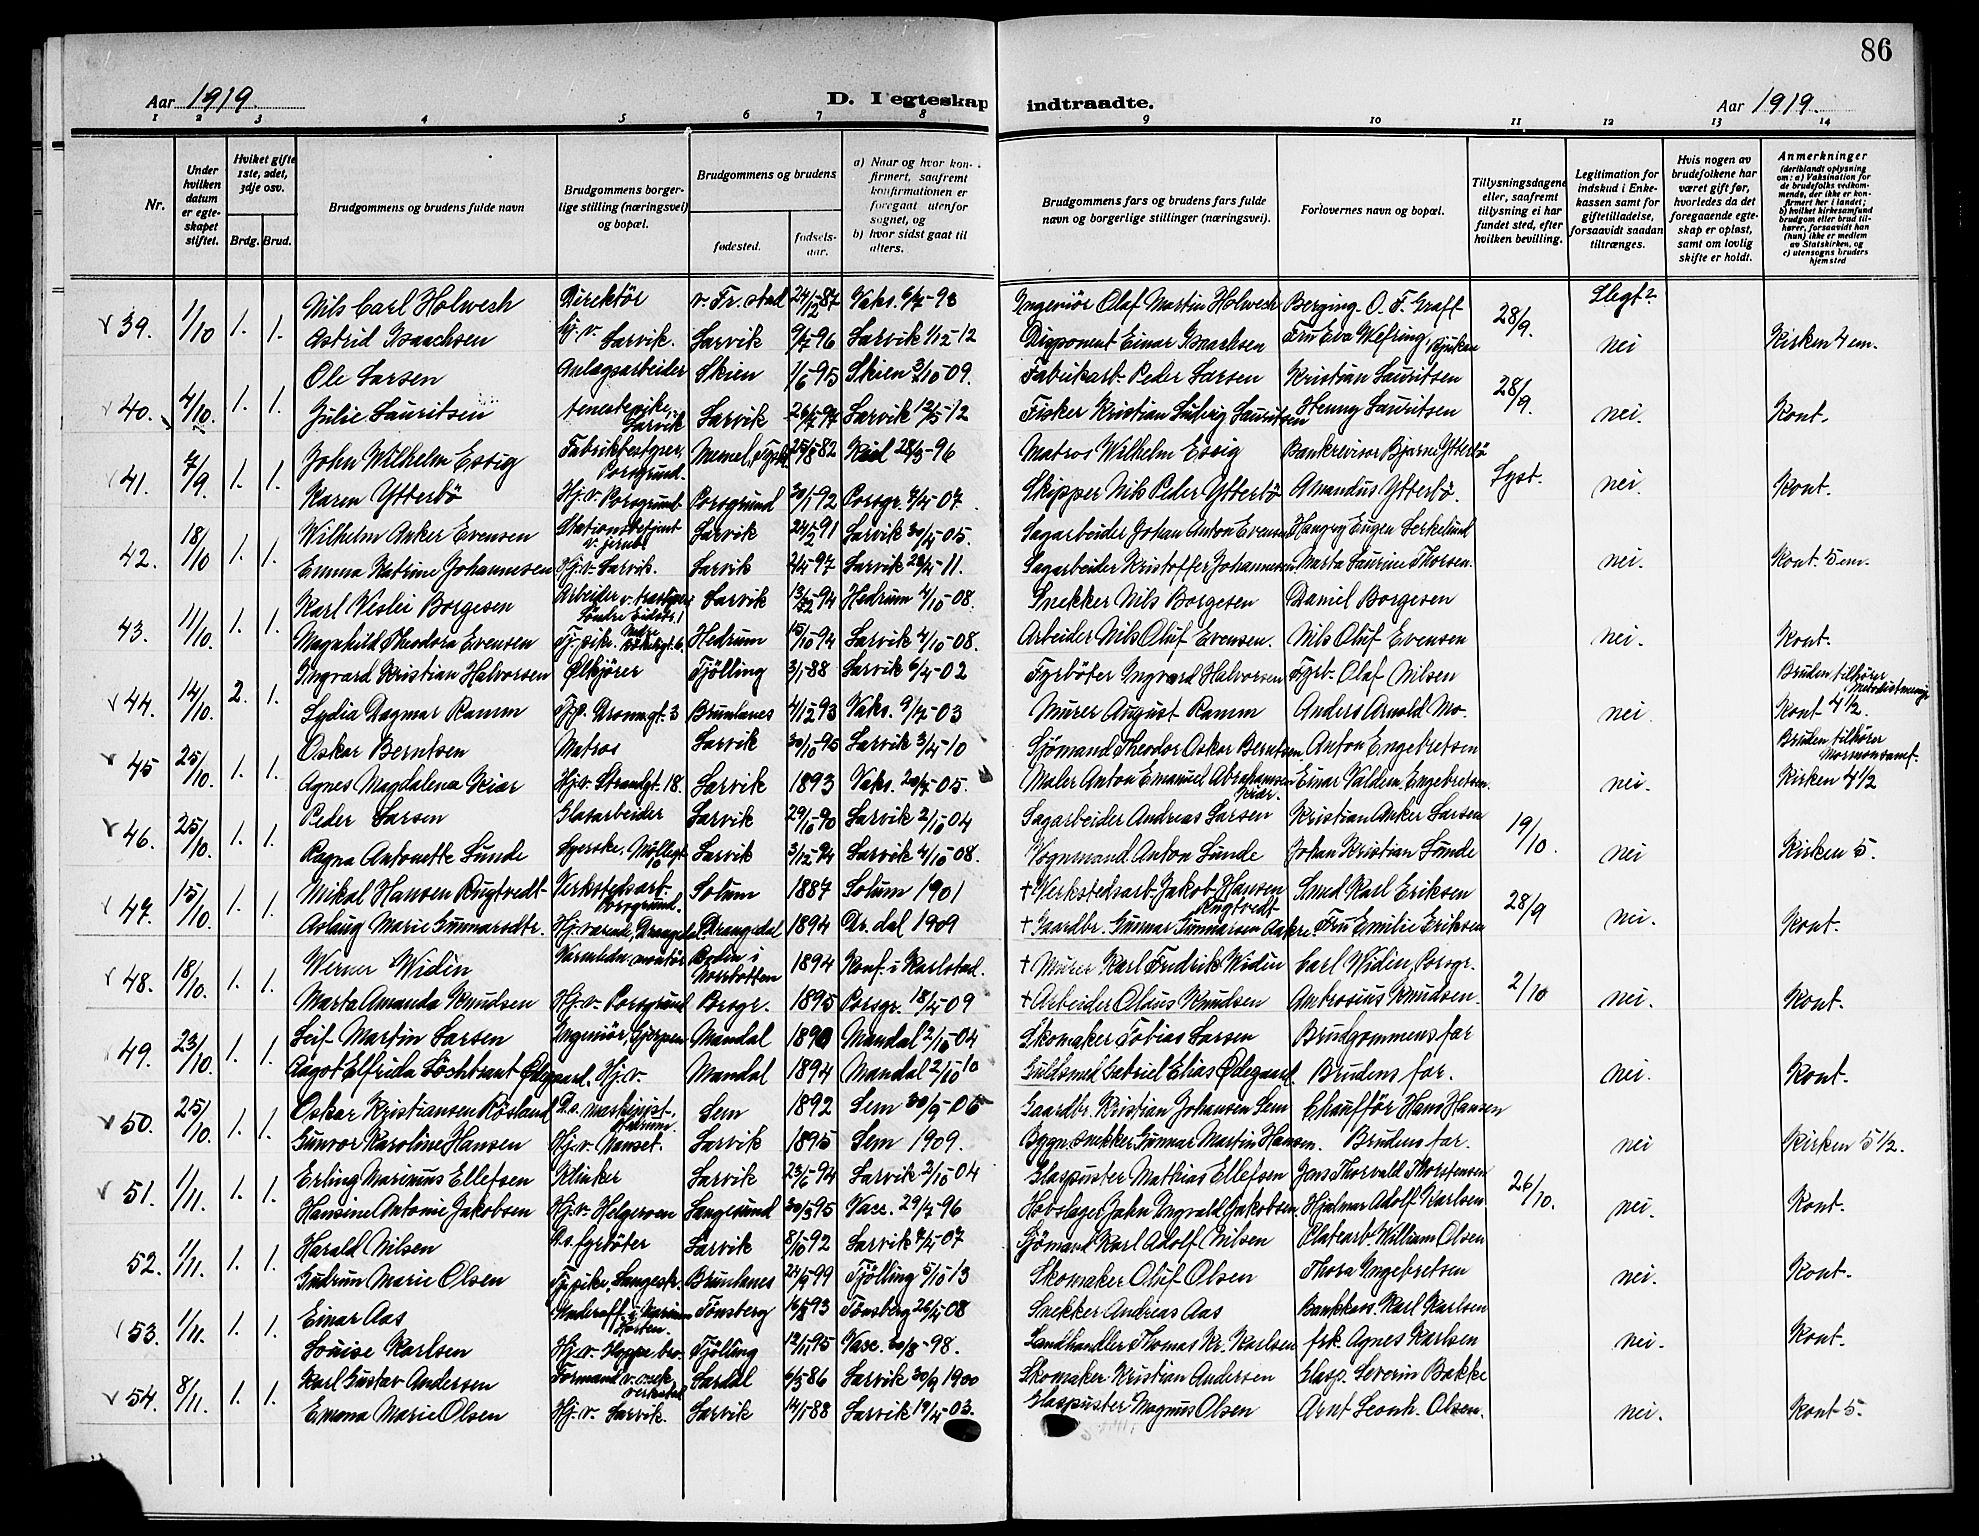 86
Aar 1919.
D. I egteskap indtraadte.
Aar 1919.
1 2 3 4 5 6 7 8 9 10 11 12 13 14
Nr.
Under hvilken datum er egteskapet stiftet.
Hvilket gifte 1ste, 2det, 3dje osv.
Brdg. Brud.
Brudgommens og brudens fulde navn
Brudgommens borgerlige stilling (næringsvei) og bopæl.
Brudgommens og brudens
fødested.
fødselsaar.
a) Naar og hvor konfirmert, saafremt konfirmationen er foregaat utenfor sognet, og
b) hvor sidst gaat til alters.
Brudgommens fars og brudens fars fulde navn og borgerlige stillinger (næringsvei).
Forlovernes navn og bopæl.
Tillysningsdagene eller, saafremt tillysning ei har fundet sted, efter hvilken bevilling.
Legitimation for indskud i Enkekassen samt for giftetilladelse, forsaavidt saadan tiltrænges.
Hvis nogen av brudefolkene har været gift før, hvorledes da det foregaaende egteskap er opløst, samt om lovlig skifte er holdt.
Anmerkninger (deriblandt oplysning om: a) Vaksination for de brudefolks vedkommende, der ikke er konfirmert her i landet; b) hvilket kirkesamfund brudgom eller brud tilhører, forsaavidt han (hun) ikke er medlem av Statskirken, og c) utensogns bruders hjemsted
39. 1/10 1. 1. Nils Carl Holwech Direktör v. Fr.stad 24/12-87 Vaks. 6/7-93 Ingeniör Olaf Martin Holwech Berging. O. F. Graff 28/9. Slegt?
Astrid Isaachsen Hj. v. Larvik. Larvik 9/7-96 Larvik 1/12-12 Disponent Einar Isachsen Fru Eva Welfring, Rjukan nei Kirken 4 em.
40. 4/10. 1. 1. Ole Larsen Anlægsarbeider Skien 1/6-95 Skien 3/10-09. Fabrikarb. Peder Larsen Kristian Lauritsen 28/9.
Julie Lauritsen tenestepike, Larvik Larvik 26/7-97 Larvik 12/5-12 Fisker Kristian Ludvig Lauritsen Henny Lauritsen nei. Kont.
41. 7/9. 1. 1. John Wilhelm Essig Fabrikbestyrer, Porsgrund. Memel, Tyskl. 25/8-82 Kiel 28/3-96 Matros Wilhelm Essig Bankrevisor Bjarne Ytterbö Lyst.
Karen Ytterbö Hj. v. Porsgrund Porsgrund 30/1-92 Porsgr. 7/4-07. Skipper Nils Peder Ytterbö Amandus Ytterbö. nei. Kont.
42. 18/10 1. 1. Wilhelm Anker Evensen Stationsbetjent v. jernb. Larvik 24/2-91 Larvik 30/4-05. Sagarbeider Johan Anton Evensen Eugen Lerkelund
Emma Katrine Johannesen Hj. v. Larvik. Larvik 2/4-97 Larvik 28/4-11. Sagarbeider Kristoffer Johannesen Marta Laurine Thorsen. nei. Kont. 5 em.
43. 11/10. 1. 1. Karl Veslei Borgesen Arbeider v. Larvik 13/12-94 Hedrum 4/10-08. Snekker Nils Borgesen Daniel Borgesen
Magnhild Theodora Evensen Tj. pike. Hedrum 15/10-94 Larvik 4/10-08. Arbeider Nils Oluf Evensen. Nils Oluf Evensen nei. Kont.
44. 14/10. 2. 1. Ingvard Kristian Halvorsen Ölkjörer Tjölling 3/1-88 Larvik 6/4-02 Fyrböter Ingvard Halvorsen Fyrb. Olaf Nilsen Bruden tilhörer Metodistmenigh.
Lydia Dagmar Ramm Tjp. Dronngt. 3 Brunlanes 4/12-93 Vaks. 9/7-03 Murer August Ramm Anders Arnold Mo. nei. Kont 4 1/2.
45 25/10. 1. 1. Oskar Berntsen Matros Larvik 30/10-95 Larvik 3/4-10 Sjömand Theodor Oskar Berntsen Anton Engebretsen Bruden tilhörer Mormonsamf.
Agnes Magdalena Kiær Hj. v. Strandgt. 18. Larvik 1893 Vaks. 20/7-05. Maler Anton Emanuel Abrahamsen Kiær. Einar Valdem. Engebretsen. nei. Kirken 4 1/2
46. 25/10. 1. 1. Peder Larsen Glasarbeider Larvik 29/10-90 Larvik 2/10-04 Sagarbeider Andreas Larsen Kristian Anker Larsen 19/10.
Ragna Antonette Lunde Syerske, Möllegt. 10 Larvik 3/12-94 Larvik 4/10-08. Vognmand. Anton Lunde Johan Kristian Lunde nei Kirken 5.
47. 15/10. 1. 1. Mikal Hansen Rugtvedt Verkstedsarb. Porsgrund. Solum 1887 Solum 1901 + Verkstedsarb. Jakob Hansen Rugtvedt Smed Karl Eriksen 28/9
Aslaug Marie Gunnarsdtr. Hj.værende, Drangedal Drangedal 1894 Dr. dal 1909 + Gaardbr. Gunnar Gunnarsen Aakre. Fru Emilie Eriksen nei. Kont.
48. 18/10. 1. 1. Werner Widin Varmledn. montör Boden i Norrbotten 1894 Konf. i Karlstad. + Murer Karl Fredrik Widin Carl Widin, Porsgr. 2/10
Marta Amanda Knudsen Hj. v. Porsgrund Porsgr. 1895 Porsgr. 18/4-09 + Arbeider Olaus Knudsen Ambrosius Knudsen. nei. Kont.
49. 23/10. 1. 1. Leif Martin Larsen Ingeniör, Gjerpen Mandal 1890 Mandal 2/10-04 Skomaker Tobias Larsen Brudgommens far
Aagot Elfrida Löchbrant Ödegaard. Hj. v. Mandal 1894 Mandal 2/10-10 Guldsmed Gabriel Elias Ödegaard. Brudens far. nei. Kont.
50. 25/10. 1. 1. Oskar Kristiansen Rösland D.s. maskinist, Hedrum. Sem 1892 Sem 30/9-06 Gaardbr. Kristian Johansen Sem Chaufför Hans Hansen
Gunvor Karoline Hansen Hj. v. Nanset. Larvik 1895 Sem 1909. Bygn.snekker Gunnar Martin Hansen. Brudens far. nei Kirken 5 1/2.
51. 1/11. 1. 1. Erling Marinius Ellefsen Klinker Larvik 23/6-94 Larvik 2/10-04 Glaspuster Mathias Ellefsen Jens Thorvald Thorstensen 26/10.
Hansine Antonie Jakobsen Hj. v. Helgeroen Langesund 30/3-95 Vacc. 29/7-96 Hovslager John Ingvald Jakobsen. Hjalmar Adolf Karlsen. nei. Kont.
52. 1/11. 1. 1. Harald Nilsen D.s. fyrböter Larvik 8/10-92 Larvik 7/4-07 Sjömand Karl Adolf Nilsen Platearb. William Olsen
Gudrun Marie Olsen Tj. pike, Langestr. Brunlanes 24/9-99 Tjölling 5/10-13 Skomaker Oluf Olsen Thora Ingebretsen nei. Kont.
53. 1/11. 1. 1. Einar Aas Underoff. i Marinen Horten. Tönsberg 16/8-93 Tönsberg 26/4-08 Snekker Andreas Aas Bankkass. Karl Karlsen
Louise Karlsen Hj. v. Hoppe bro. Tjölling 12/11-95 Vacc. 30/8-98. Landhandler Thomas Kr. Karlsen frk. Agnes Karlsen nei. Kont.
54. 8/11. 1. 1. Karl Gustav Andersen Formand v. mek. verksted Lardal 4/3-86 Larvik 30/9 1900 Skomaker Kristian Andersen Glasp. Severin Bakke
Emma Marie Olsen Hj. v. Larvik. Larvik 14/1-88 Larvik 19/4-03. Glaspuster Magnus Olsen Arnt Leonh. Olsen. nei. Kont 5.